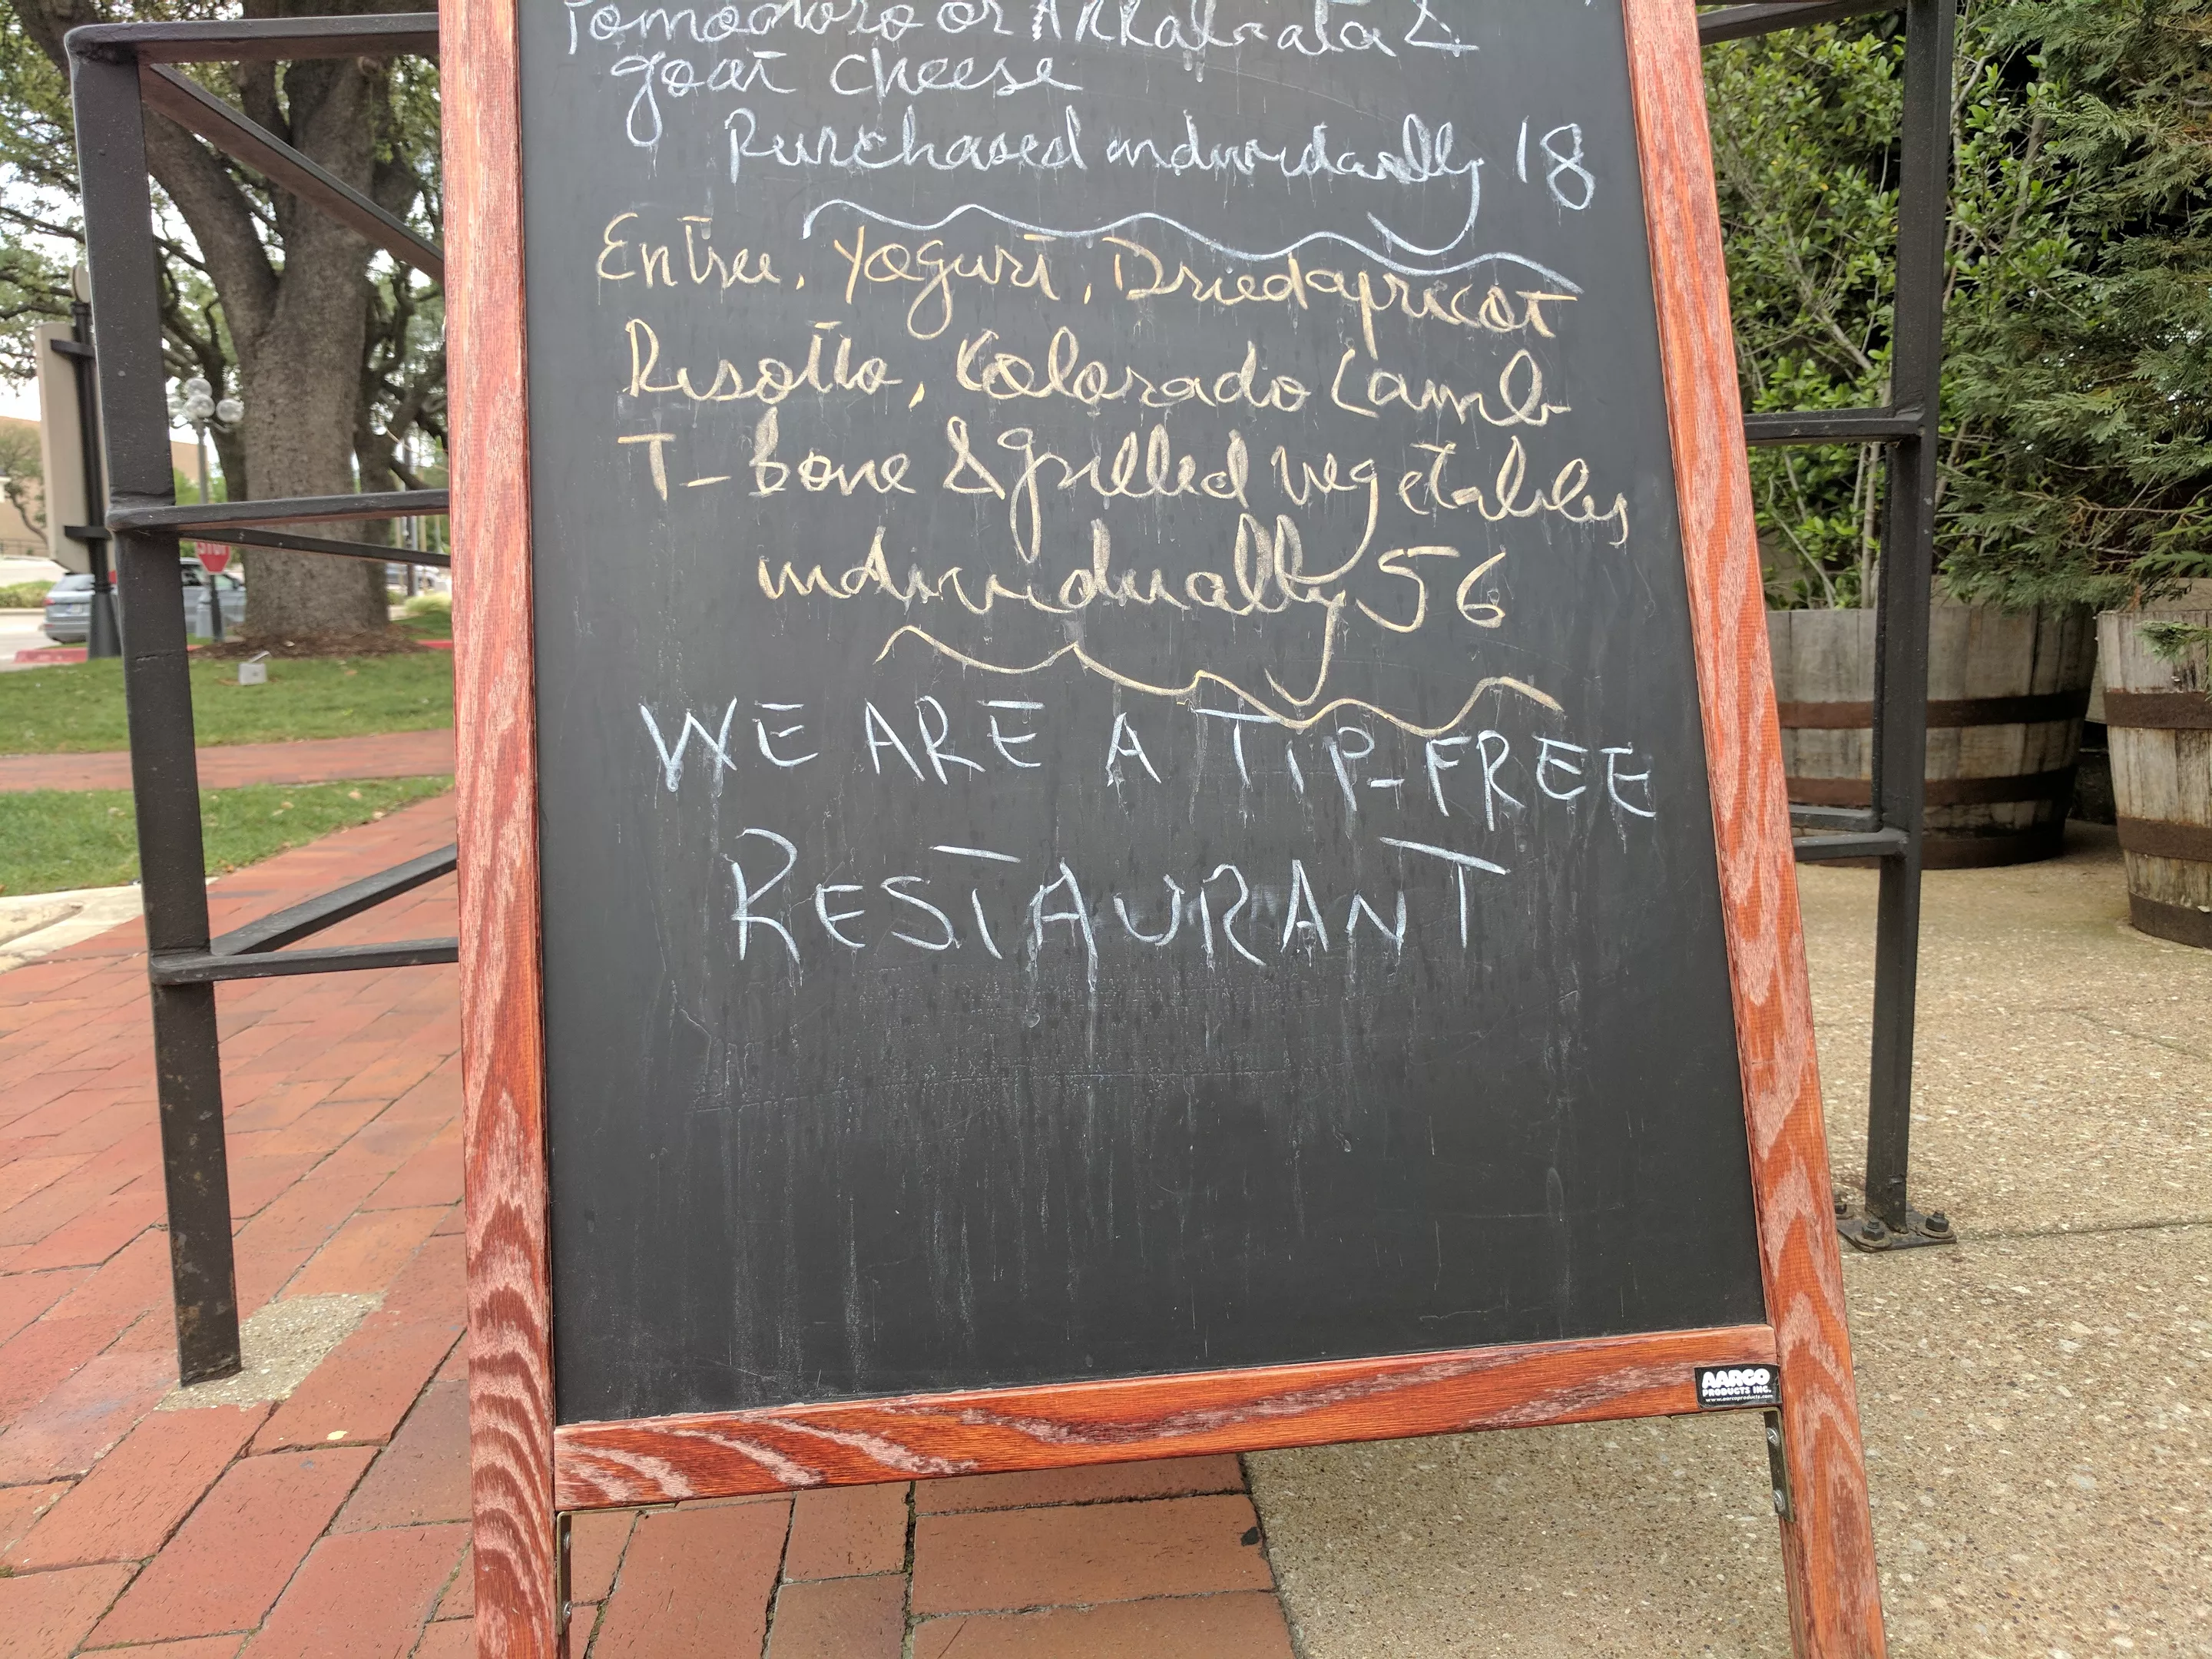 Pomodoro or Arrabiata &
goat cheese
Purchased individually 18
Entree, Yogurt, Dried apricot
Risotto, Colorado Lamb
T-bone & grilled vegetables
individually 56
WE ARE A TIP-FREE
RESTAURANT
AARCO
PRODUCTS INC.
www.aarcoproducts.com
STOP